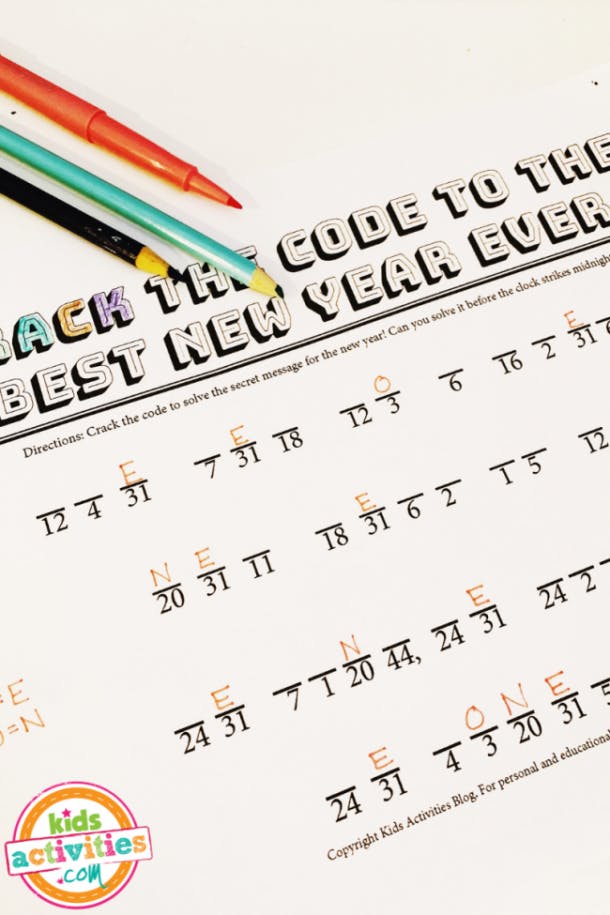 ACK THE CODE TO THE
BEST NEW YEAR EVER
Directions: Crack the code to solve the secret message for the new year! Can you solve it before the clock strikes midnight
E O E
12 4 31 7 31 18 12 3 6 16 2 31
E E
N E E
20 31 11 18 31 6 2 1 5 12
E N E
24 31 7 1 20 44, 24 31 24 2
E O N E
24 31 4 3 20 31
= E
=N
Copyright Kids Activities Blog. For personal and educational
kids
activities
.com